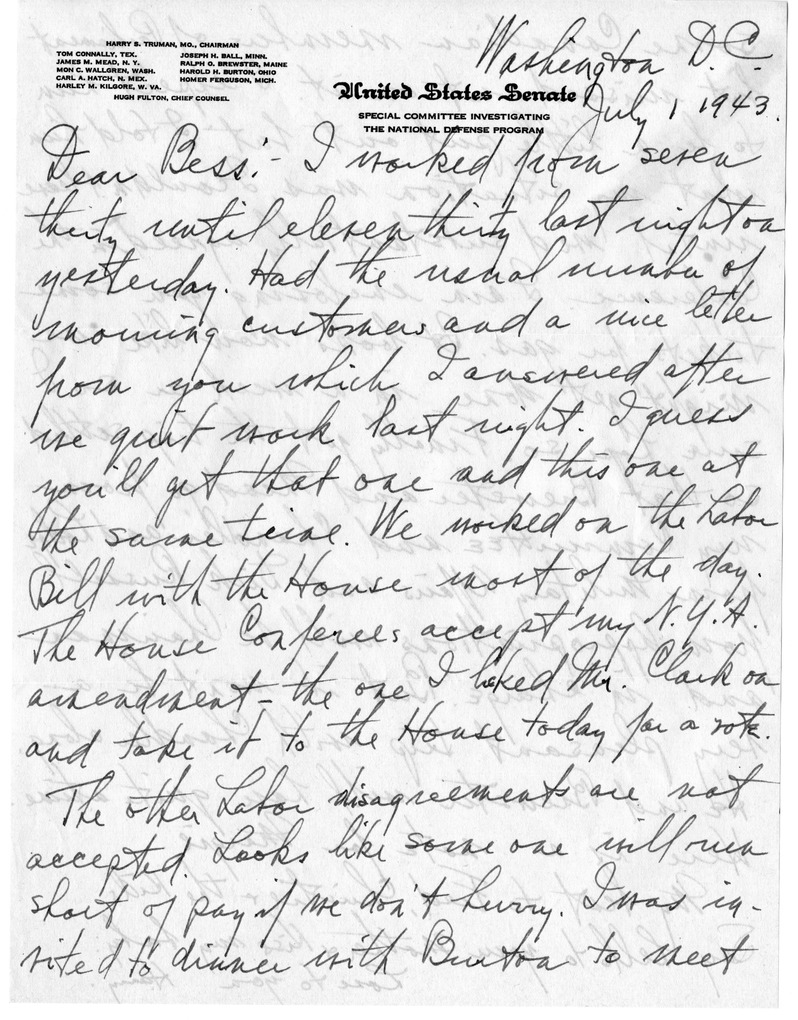 HARRY S. TRUMAN, MO., CHAIRMAN
TOM CONNALLY, TEX.
JAMES M. MEAD, N. Y.
MON C. WALLGREN, WASH.
CARL A. HATCH, N. MEX.
HARLEY M. KILGORE, W. VA.
JOSEPH H. BALL, MINN.
RALPH O. BREWSTER, MAINE
HAROLD H. BURTON, OHIO
HOMER FERGUSON, MICH.
HUGH FULTON, CHIEF COUNSEL
United States Senate
SPECIAL COMMITTEE INVESTIGATING
THE NATIONAL DEFENSE PROGRAM
Washington D.C.
July 1 1943.
Dear Bess:- I worked from seven
thirty until eleven thirty last night on
yesterday. Had the usual number of
morning customers and a nice letter
from you which I answered after
we quit work last night. I guess
you'll get that one and this one at
the same time. We worked on the Labor
Bill with the House most of the day.
The House Conferees accept my N.Y.A.
amendment - the one I licked Mr. Clark on
and take it to the House today for a vote.
The other Labor disagreements are not
accepted. Looks like some one will run
short of pay if we don't hurry. I was in-
vited to dinner with Burton to meet